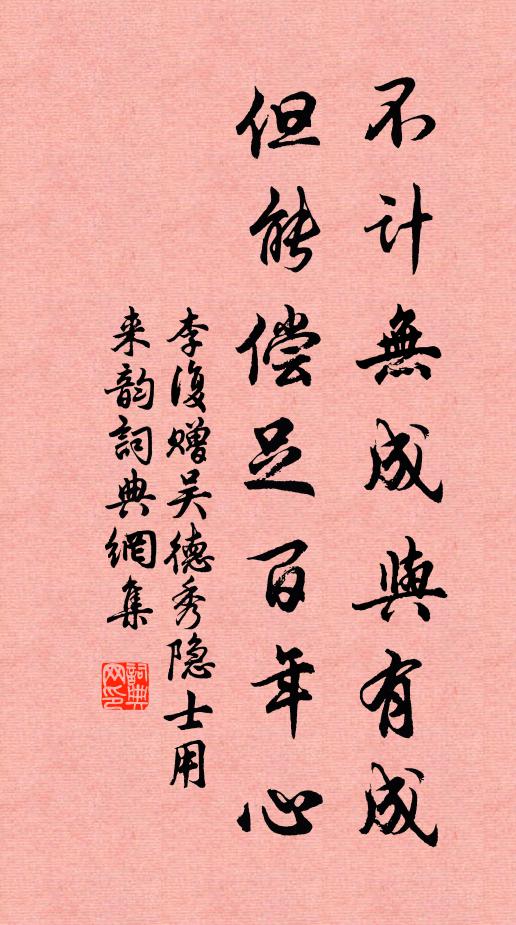 不计無成與有成
但能偿足百年心
李復赠吴德秀隐士用
来韵詞典網集
詞典网印